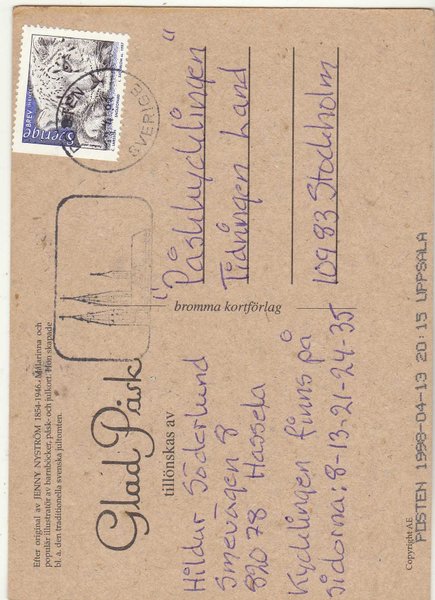 Efter original av JENNY NYSTRÖM 1854-1946. Målarinna och
populär illustratör av barnböcker, påsk- och julkort. Hon skapade
bl. a. den traditionella svenska jultomten.
Glad Påsk
tillönskas av
Hildur Söderlund
Smevägen 8
82078 Hassela
Kycklingen finns på
sidorna: 8-13-21-24-35
Copyright AE
bromma kortförlag
BREV
Sverige
SVERIGE
"Påskkycklingen"
Tidningen Land
10983 Stockholm
POSTEN 1998-04-13 20:15 UPPSALA